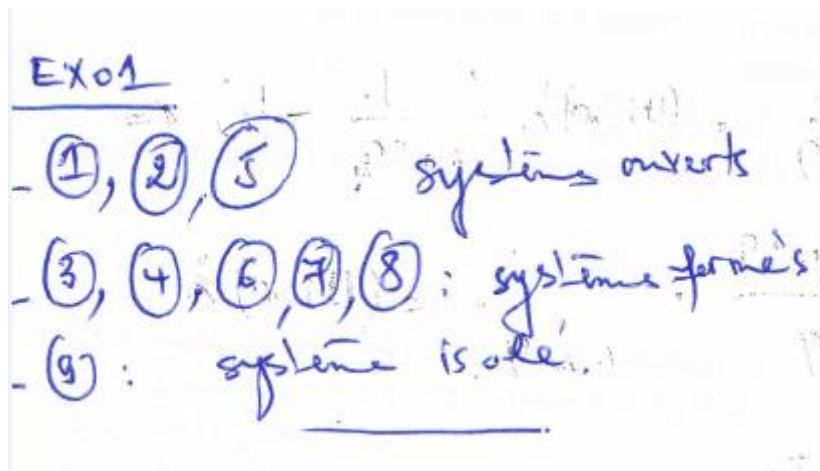 EXO1
- ①, ②, ⑤ : systèmes ouverts
- ③, ④, ⑥, ⑦, ⑧ : systèmes fermés
- ⑨ : système isolé.